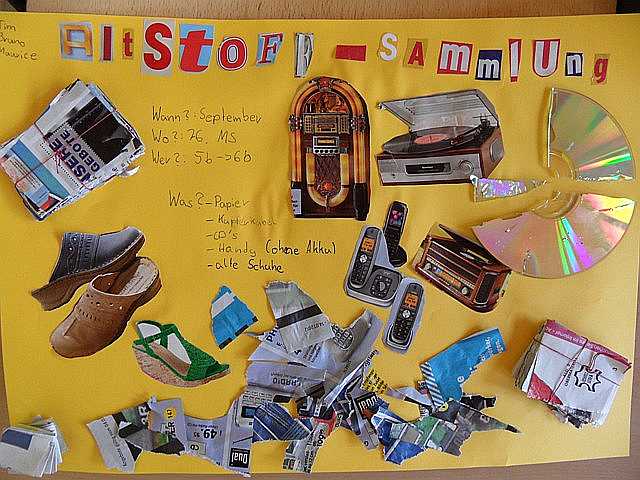 Tim
Bruno
Maurice
AltStoff-SammlUng
Wann?: September
Wo?: 76. MS
Wer?: 5b->6b
Was?-Papier
- Kupferkabel
- CD's
- Handy (ohne Akku)
- alte Schuhe
UNSERE
GEBOTE
RADIO
49.
Dual